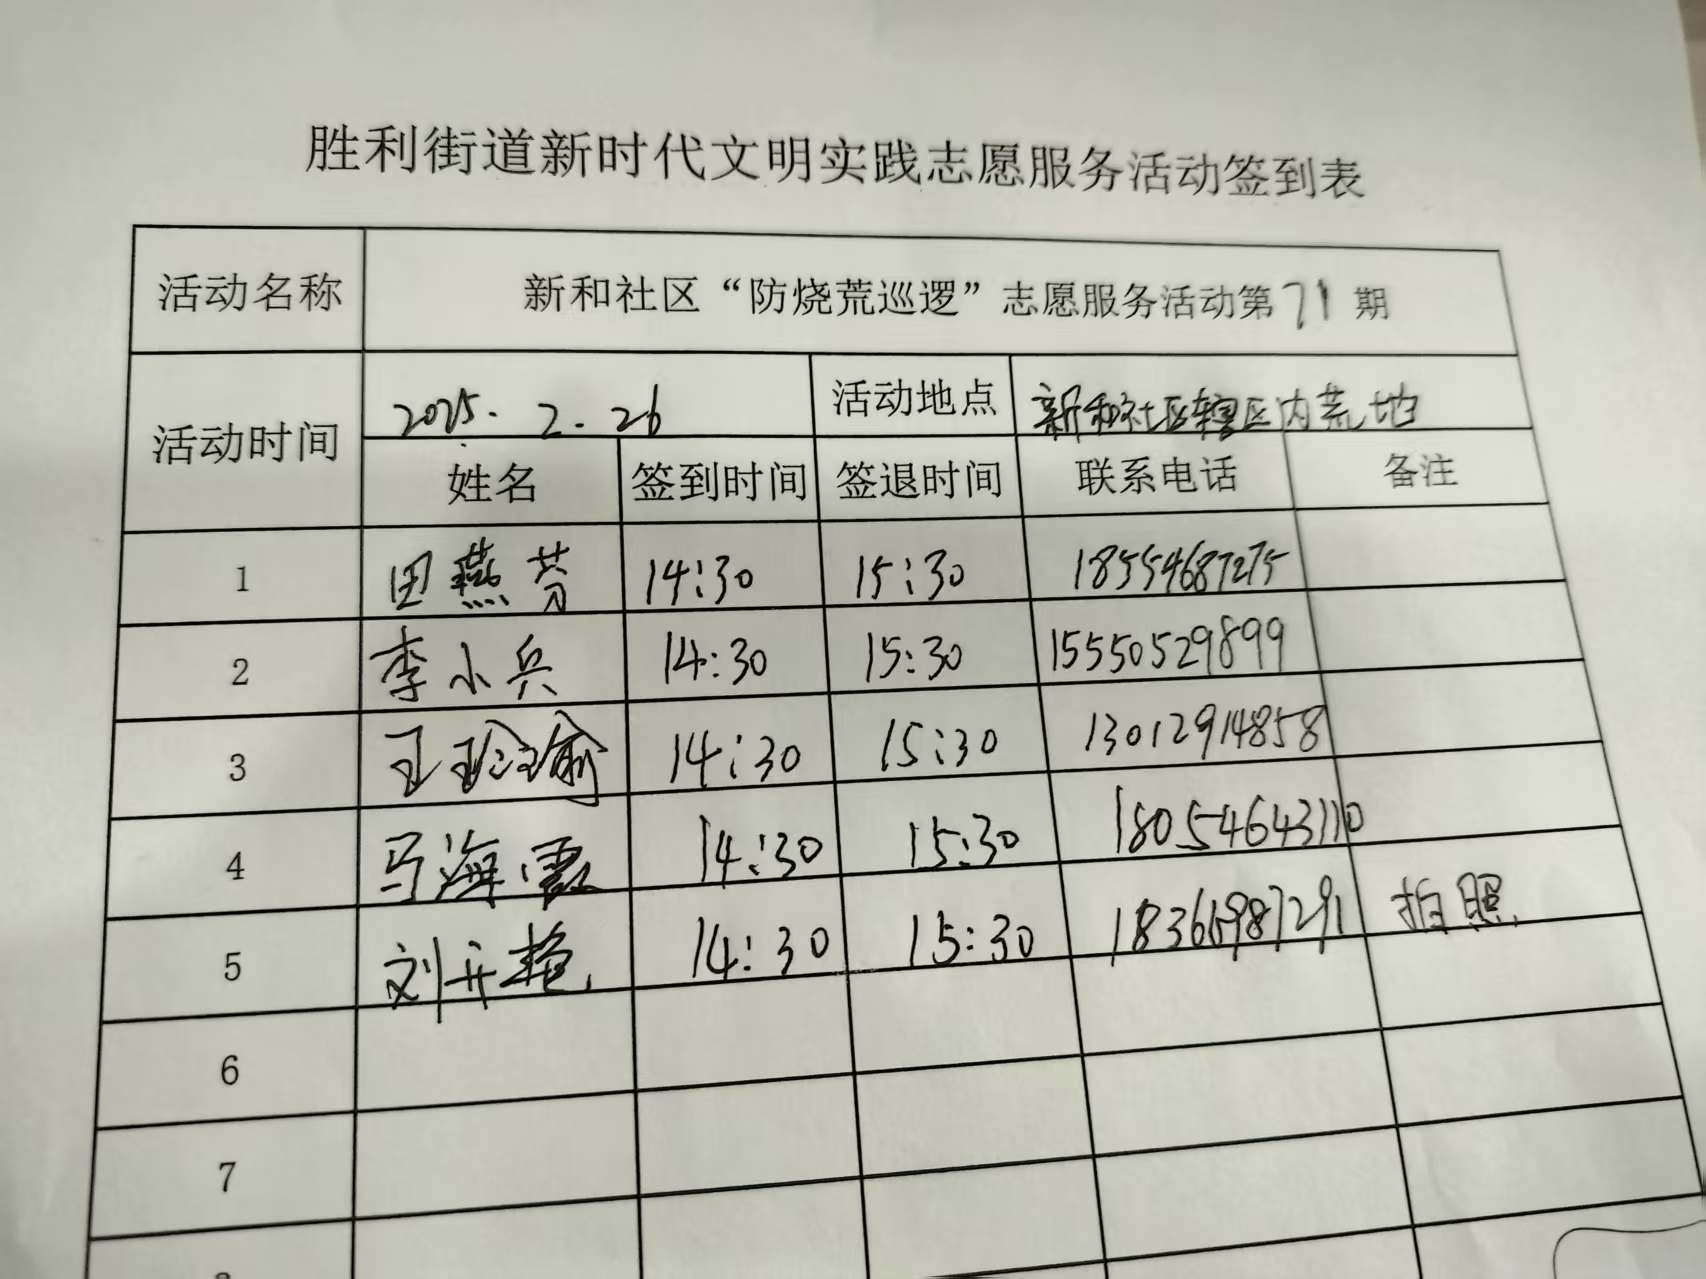 胜利街道新时代文明实践志愿服务活动签到表
活动名称 新和社区“防烧荒巡逻”志愿服务活动第71期
活动时间 2025.2.26 活动地点 新和社区辖区内荒地
姓名 签到时间 签退时间 联系电话 备注
1 田燕芬 14:30 15:30 18554687275
2 李小兵 14:30 15:30 15550529899
3 王玲瑜 14:30 15:30 13012914858
4 马海霞 14:30 15:30 18054643110
5 刘开艳 14:30 15:30 18366987291 拍照
6
7